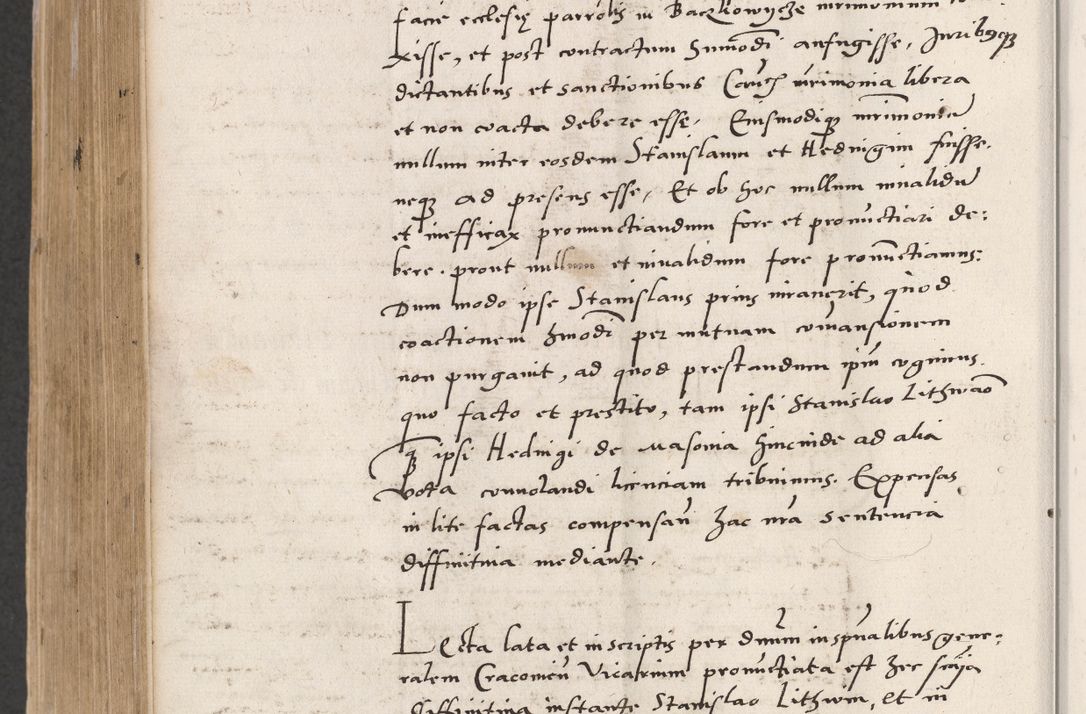 facie ecclesię parrolis in Baczkowycze mrimonium
xisse, et post contractum hmōdi aufugisse, Juribusq
dictantibus et sanctionibus Canō mrimonia libera
et non coacta debere esse. Eiusmodiq mrimoniū
nullum inter eosdem Stanislaum et Heduigim fuisse,
neq ad presens esse, Et ob hoc nullum inualidū
et inefficax pronunctiandum fore et pronūctiari de:
bere. prout nullum et inualidum fore pronūctiamus:
Dum modo ipse Stanislaus prius iurauerit, quod
coactionem hmōdi per mutuam comansionem
non purgauit, ad quod prestandum ipm̄ cogimus.
quo facto et prestito, tam ipsi Stanislao Lithwao
q̄ ipsi Heduigi de Masouia hincinde ad alia
vota conuolandi licenciam tribuimus. Expensas
in lite factas compensan̄ hac nr̄a sentencia
diffinitiua mediante.
Lecta lata et in scriptis per dnūm in spūalibus gene:
ralem Cracouien̄ Vicarium pronūctiata est hec snīa
diffinitiua instante Stanislao Lithwon, et in